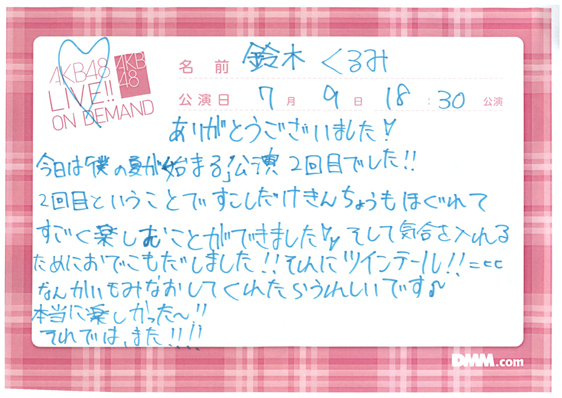 AKB48
LIVE!!
ON DEMAND
AKB
48
名前 鈴木くるみ
公演日 7月9日 18:30 公演
ありがとうございました!
今日は「僕の夏が始まる」公演 2回目でした!!
2回目ということですこしだけきんちょうもほぐれて
すごく楽しむことができました!! そして気合を入れる
ためにおでこもだしました!! それにツインテール!!
なんかいもみなおしてくれたらうれしいです♪
本当に楽しかった〜!!
それでは、また!!!!
DMM.com